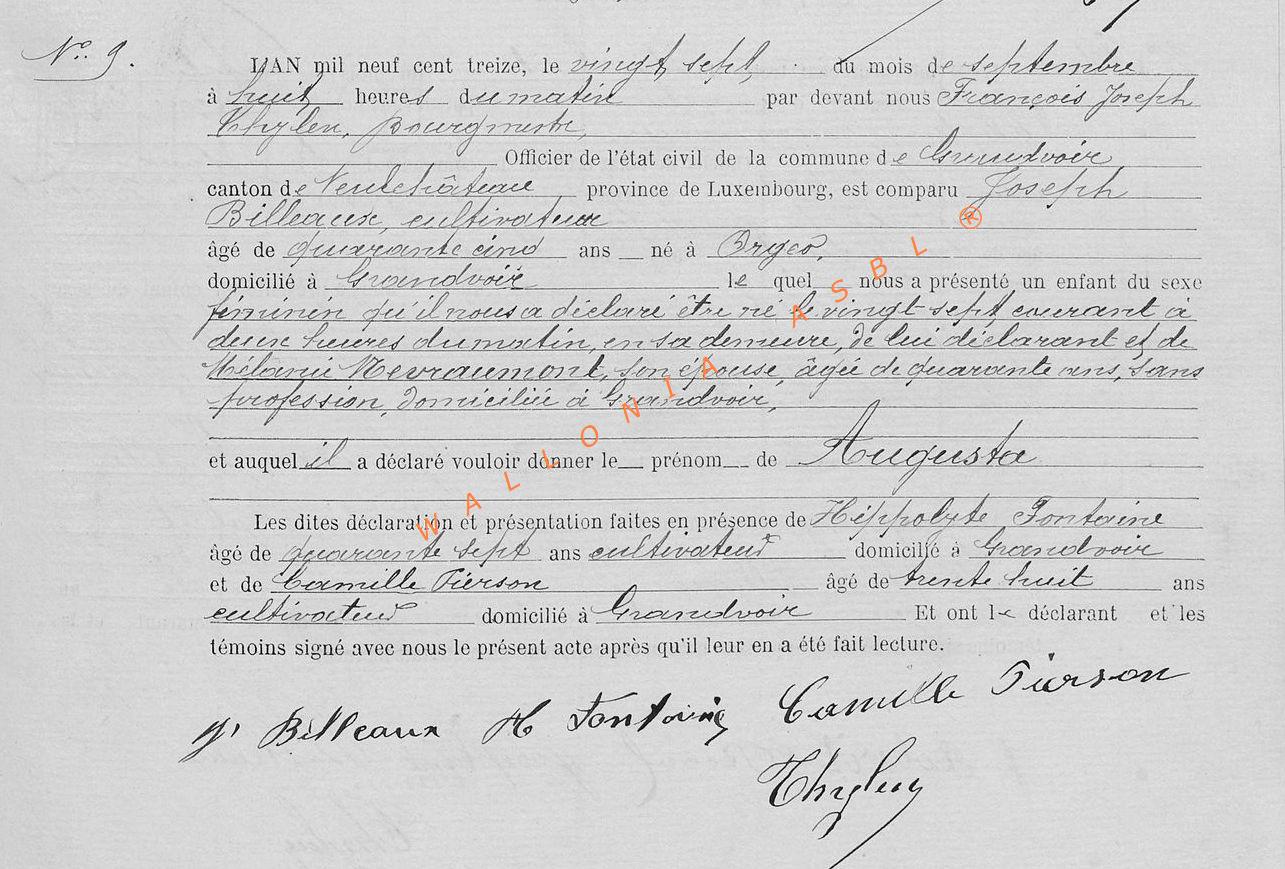 N° 9.
L'AN mil neuf cent treize, le vingt sept, du mois de septembre
à huit heures du matin par devant nous François Joseph
Thylen, Bourgmestre,
Officier de l'état civil de la commune de Grandvoir
canton de Neufchâteau province de Luxembourg, est comparu Joseph
Billeaux, cultivateur
âgé de quarante cinq ans né à Orgeo,
domicilié à Grandvoir le quel nous a présenté un enfant du sexe
féminin qu'il nous a déclaré être né le vingt-sept courant à
deux heures du matin, en sa demeure, de lui déclarant et de
Mélanie Nevraumont, son épouse, âgée de quarante ans, sans
profession, domiciliée à Grandvoir,
et auquel il a déclaré vouloir donner le prénom de Augusta
Les dites déclaration et présentation faites en présence de Hippolyte Fontaine
âgé de quarante sept ans cultivateur domicilié à Grandvoir
et de Camille Pierson âgé de trente huit ans
cultivateur domicilié à Grandvoir Et ont le déclarant et les
témoins signé avec nous le présent acte après qu'il leur en a été fait lecture.
Jh Billeaux H Fontaine Camille Pierson
Thylen
WALLONIA ASBL ®